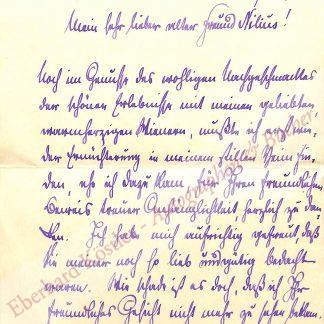 Mein sehr lieber alter Freund Nilius!
Noch im Genusse des wohligen Nachgeschmackes
der schönen Erlebnisse mit meinen geliebten
warmherzigen Wienern, mußte ich
der Ernüchterung in meinem stillen Heim fin-
den, ehe ich dazu kam für Ihren freundlichen
Beweis treuer Anhänglichkeit herzlich zu dan-
ken. Ich hab mich aufrichtig gefreut, daß
Sie meiner noch so lieb und gütig bedacht
waren. Wie schade ist es doch, daß ich Ihr
freundliches Gesicht nicht mehr zu sehen bekam.
Eberhard Köstler - Autographen & Bücher